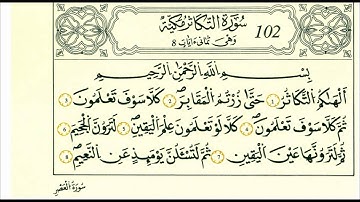 سُورَةُ التَّكَاثُرِ مَكِّيَّة
وَهِيَ ثَمَانِي اٰيَاتٍ 8
102
بِسْمِ اللّٰهِ الرَّحْمٰنِ الرَّحِيمِ
اَلْهٰيكُمُ التَّكَاثُرُۙ ١ حَتّٰى زُرْتُمُ الْمَقَابِرَۜ ٢ كَلَّا سَوْفَ تَعْلَمُونَۙ ٣
ثُمَّ كَلَّا سَوْفَ تَعْلَمُونَۜ ٤ كَلَّا لَوْ تَعْلَمُونَ عِلْمَ الْيَقِينِۜ ٥ لَتَرَوُنَّ الْجَحِيمَۙ ٦
ثُمَّ لَتَرَوُنَّهَا عَيْنَ الْيَقِينِۙ ٧ ثُمَّ لَتُسْـَٔلُنَّ يَوْمَئِذٍ عَنِ النَّعِيمِ ٨
سُورَةُ الْعَصْرِ